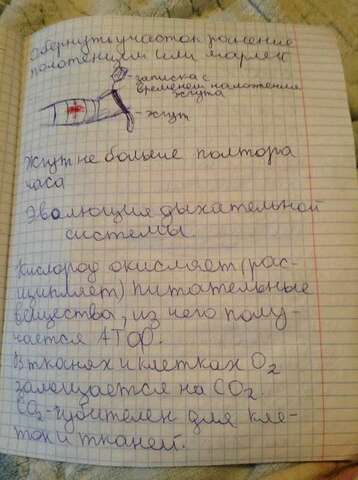 Обернуть участок ранение
полотенцем или марлей
записка с
временем наложения
жгута
жгут
Жгут не больше полтора
часа
Эволюция дыхательной
системы.
Кислород окисляет (рас-
щипляет) питательные
вещества, из него полу-
чается АТФ.
В тканях и клетках O₂
замещается на CO₂.
CO₂-губителен для кле-
ток и тканей.